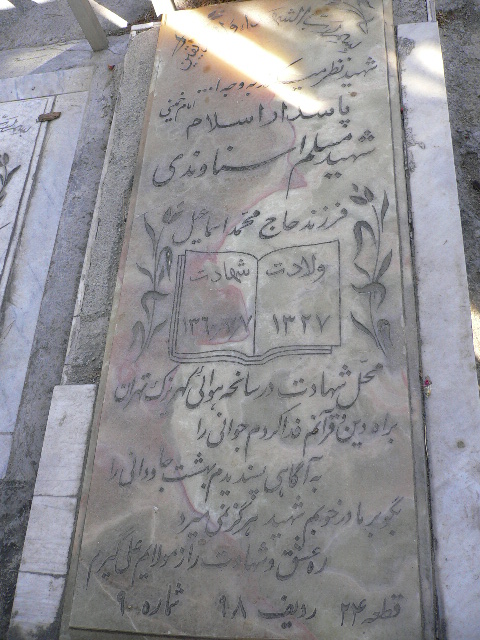 شهید نظر میکند به وجه ا... امام خمینی
پاسدار اسلام
شهید مسلم اسناوندی
فرزند حاج محمد اسماعیل
ولادت
۱۳۲۷
شهادت
۱۳۶۰/۷/۷
محل شهادت در سانحه هوائی کهریزک تهران
براه دین و قرآنم فدا کردم جوانی را
به آگاهی پسندیدم بهشت جاودانی را
بگو بر مادر خوبم شهید هرگز نمی میرد
ره عشق و شهادت را ز مولایم علی گیرم
قطعه ۲۴ ردیف ۹۸ شماره ۹۰